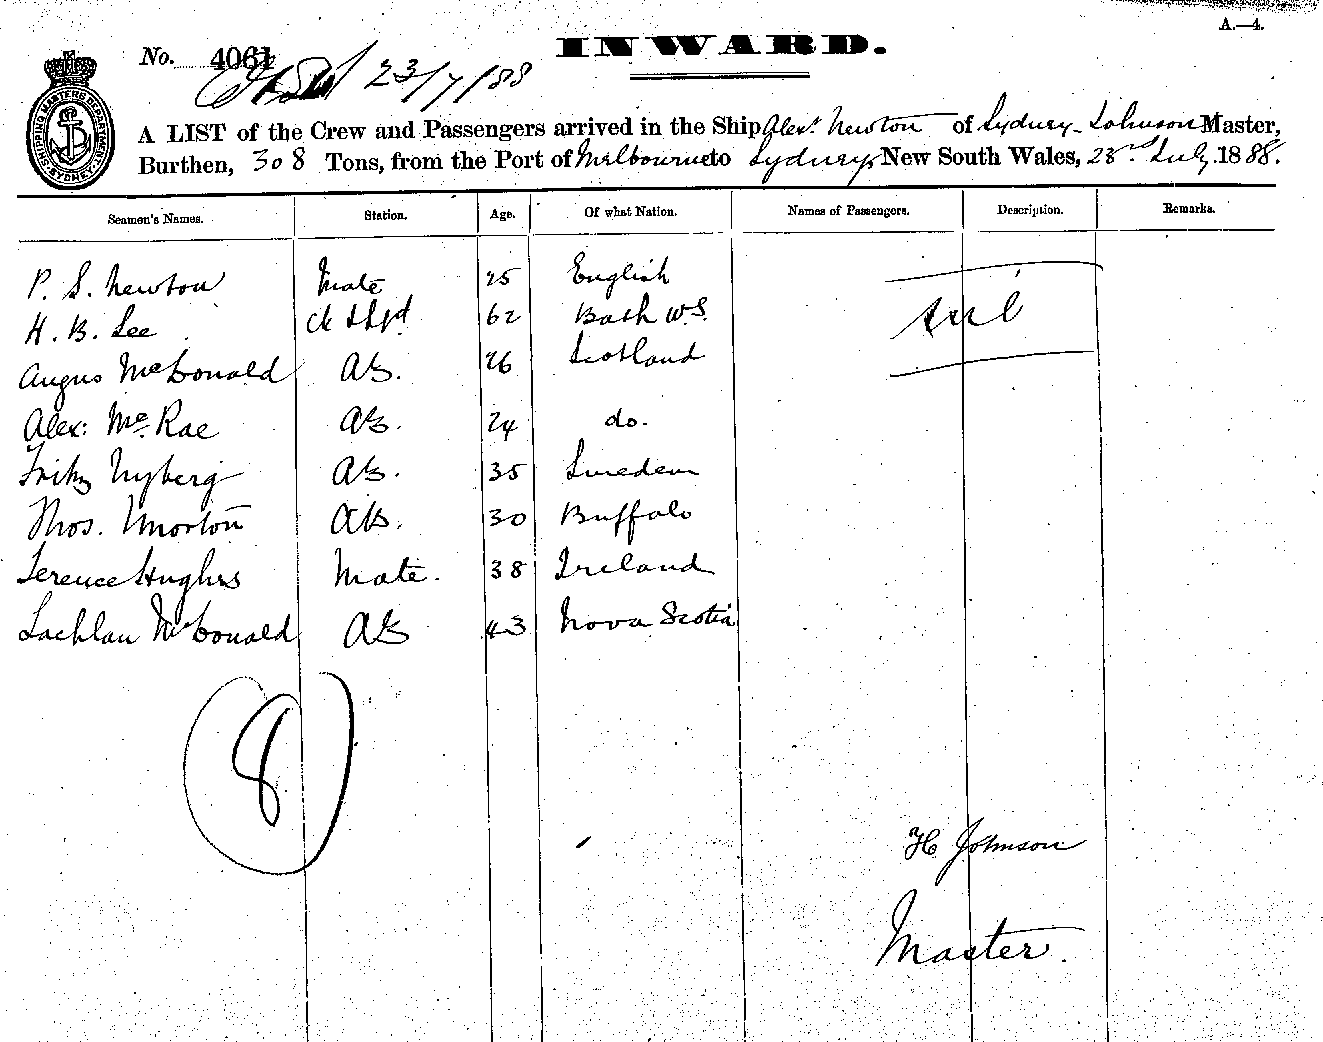 A.—4.
INWARD.
No. 4061
23/7/88
SHIPPING MASTERS DEPARTMENT SYDNEY
A LIST of the Crew and Passengers arrived in the Ship Alexr. Newton of Sydney - Johnson Master,
Burthen, 308 Tons, from the Port of Melbourne to Sydney New South Wales, 23rd July, 1888.
Seamen's Names. Station. Age. Of what Nation. Names of Passengers. Description. Remarks.
P. S. Newton Mate 25 English
H. B. Lee 62 Bath U.S. nil
Angus McDonald AB. 26 Scotland
Alex: McRae AB. 24 do.
Fritz Nyberg AB. 35 Sweden
Thos. Morton AB. 30 Buffalo
Terence Hughes Mate. 38 Ireland
Lachlan McDonald AB 43 Nova Scotia
8
H Johnson
Master.